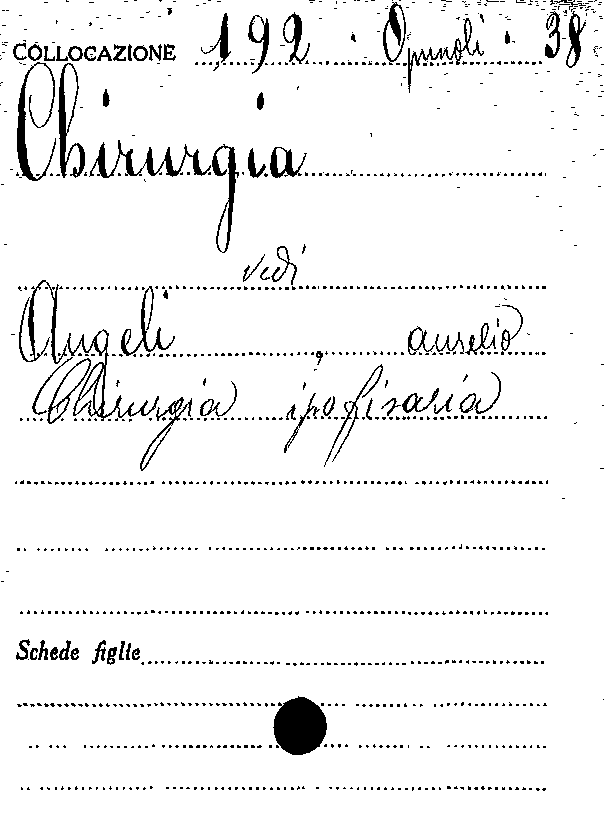 COLLOCAZIONE 192 · Opuscoli · 38
Chirurgia
vedi
Angeli, aurelio
Chirurgia ipofisaria
Schede figlie